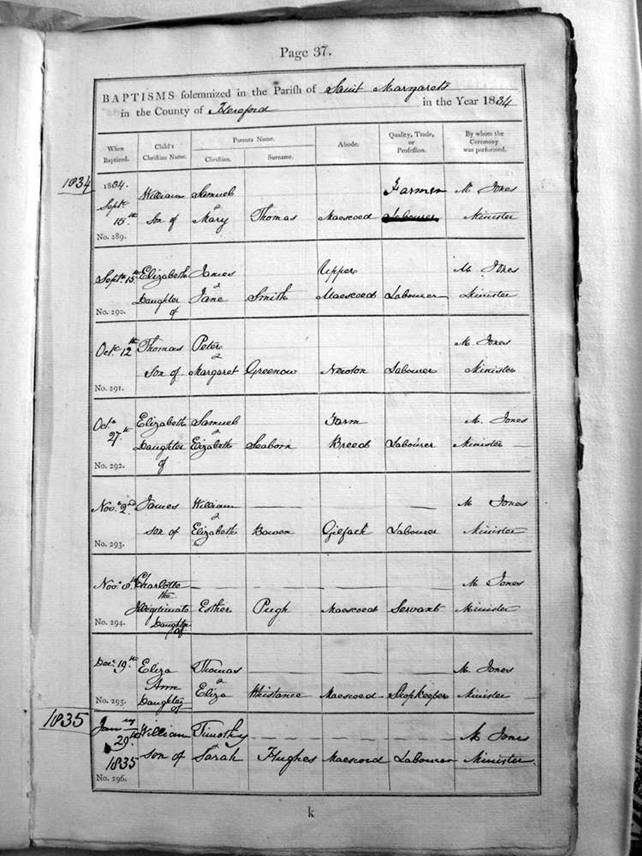 Page 37.
BAPTISMS solemnized in the Parish of Saint Margarets
in the County of Hereford in the Year 1834
When Baptized. Child's Christian Name. Parents Name. Christian. Surname. Abode. Quality, Trade, or Profession. By whom the Ceremony was performed.
1834
1834. William Samuel Farmer M. Jones
Septr & 
15th son of Mary Thomas Maescoed Labourer Minister
No. 289.
Septr 15th Elizabeth James Upper M. Jones
Daughter & Jane Smith Maescoed Labourer Minister
of
No. 290.
Octr 12th Thomas Peter M. Jones
son of & Margaret Greenow Newton Labourer Minister
No. 291.
Octr Elizabeth Samuel Farm M. Jones
27th Daughter & Elizabeth Seaborn Breed Labourer Minister
of
No. 292.
Novr 2nd James William M. Jones
son of & Elizabeth Bowen Labourer Minister
No. 293.
Novr Charlotte M. Jones
the
Illegitimate Esther Pugh Maescoed Servant Minister
Daughter of
No. 294.
Decr 19th Eliza Thomas M. Jones
Ann &
Daughter of Eliza Maescoed Shopkeeper Minister
No. 295.
1835
Jany William Timothy M. Jones
29th &
1835 son of Sarah Hughes Maescoed Labourer Minister
No. 296.
k